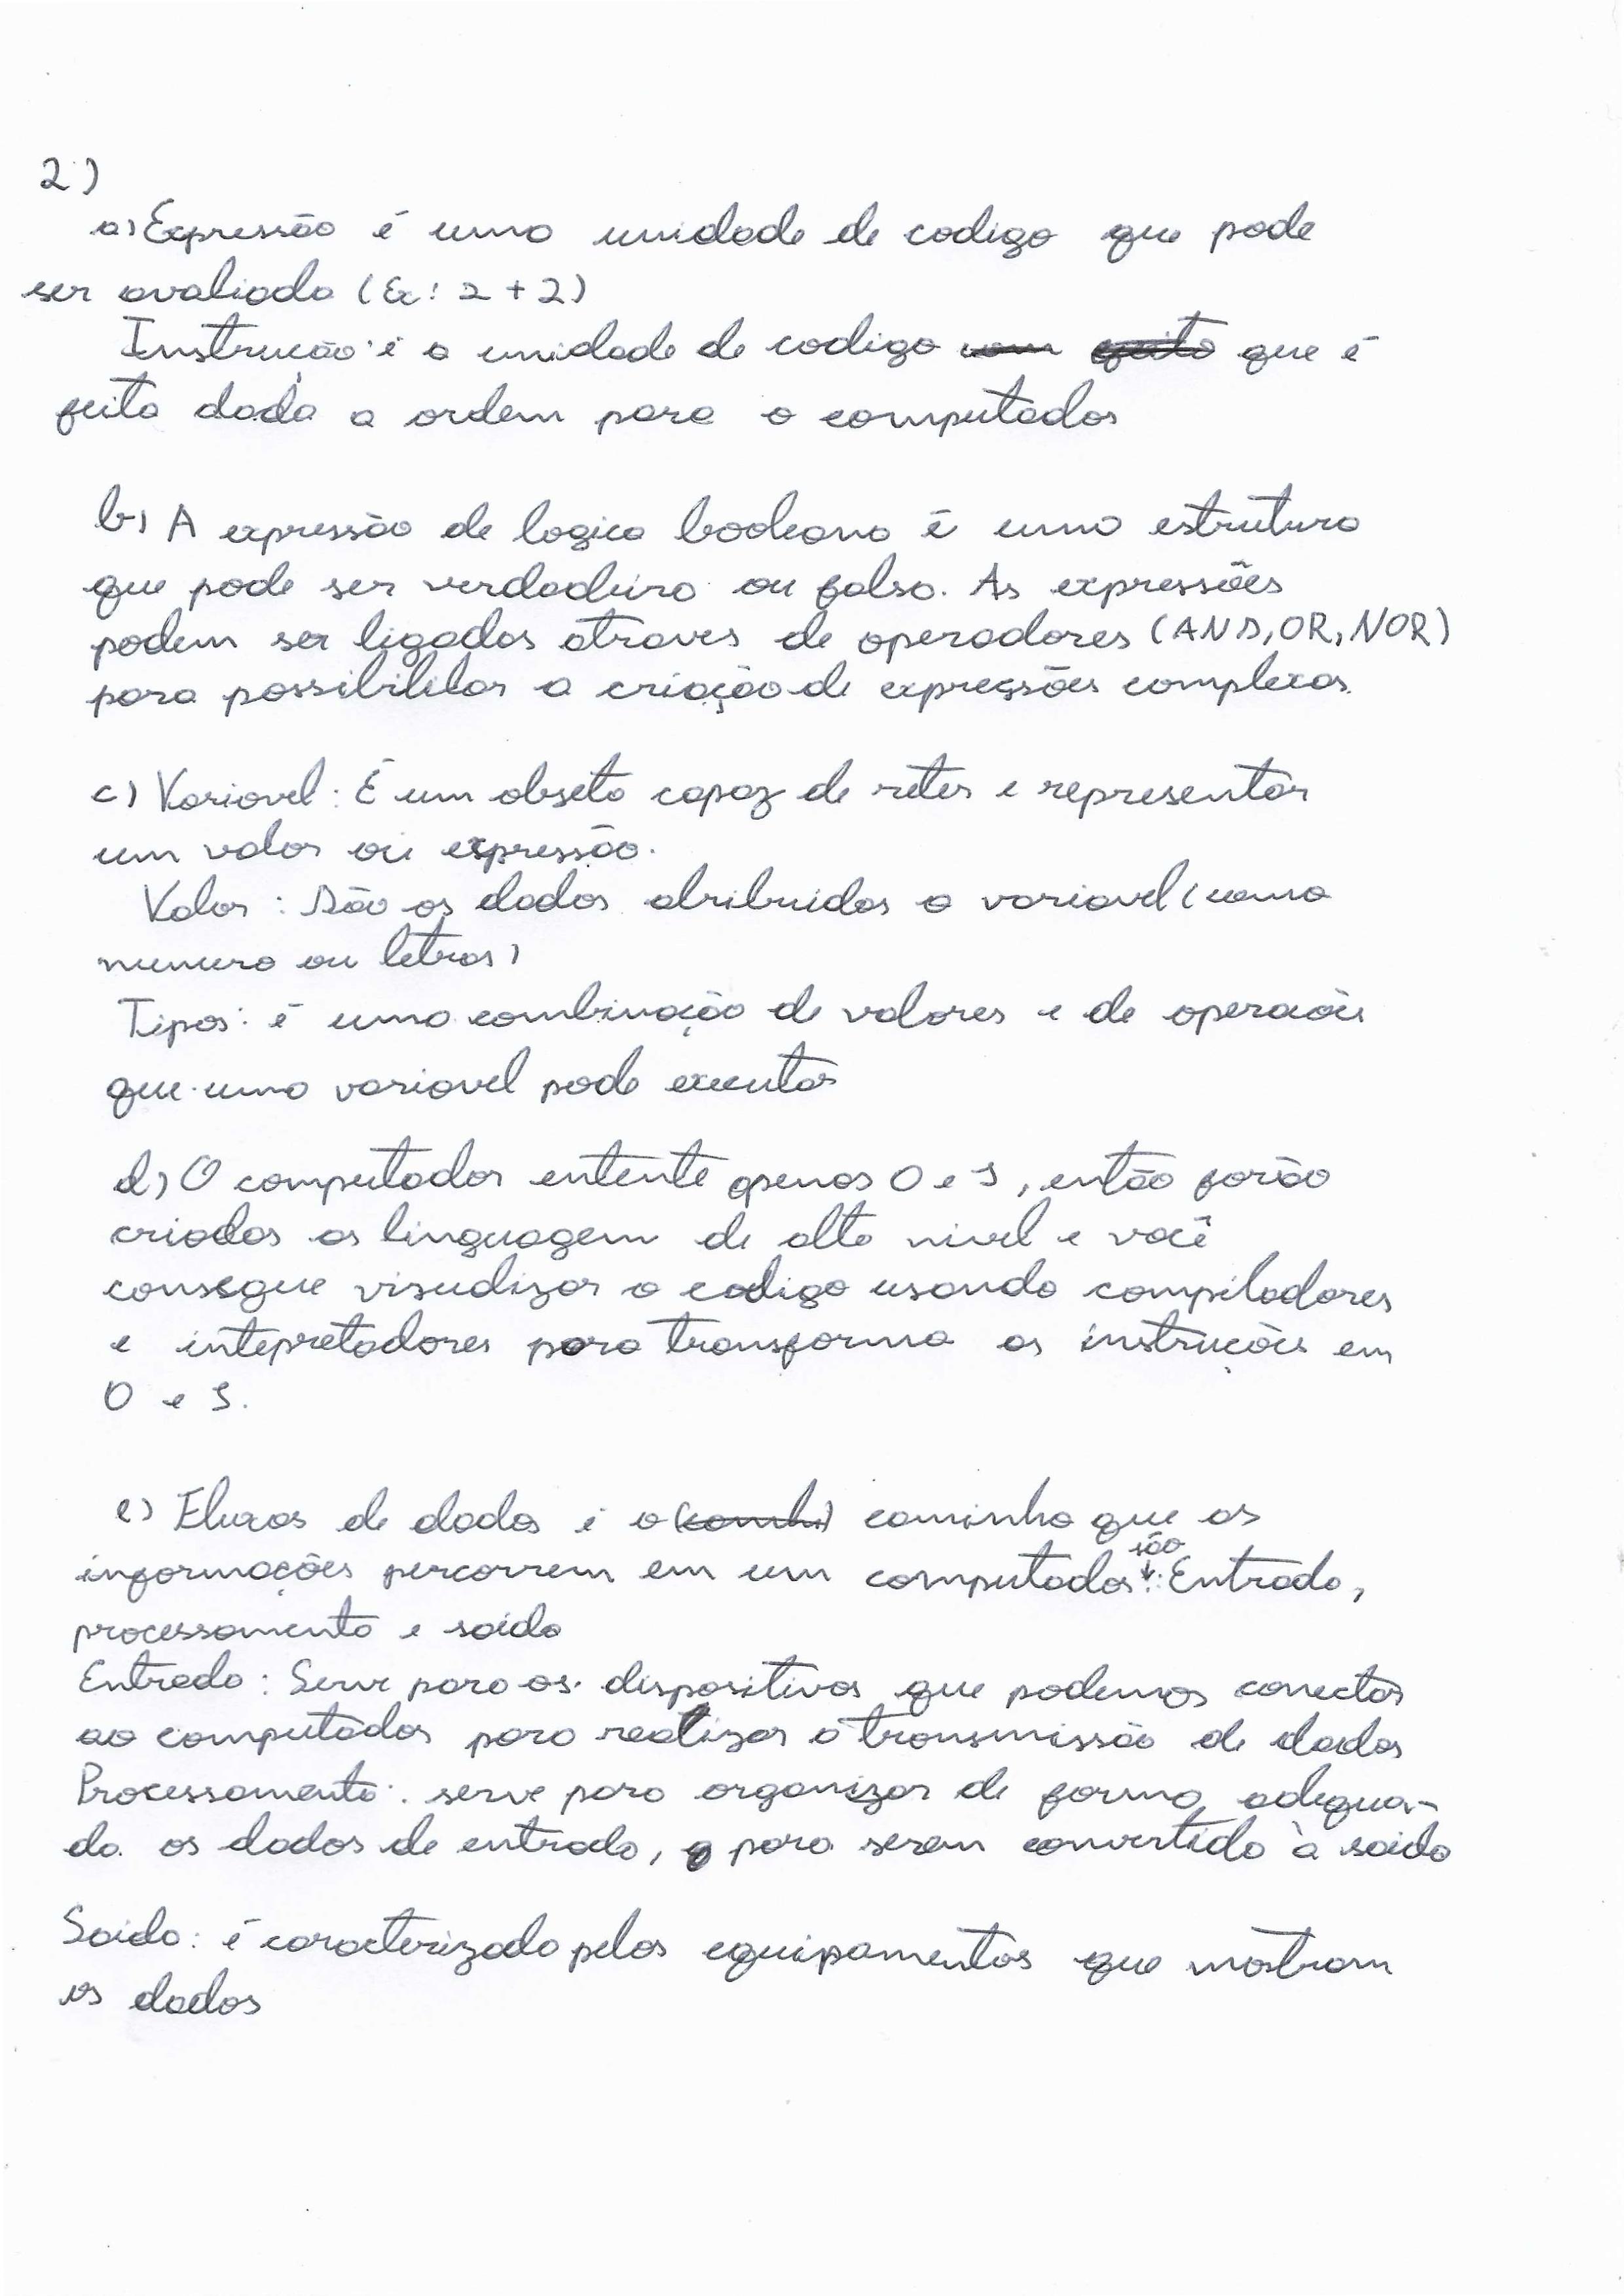 2)
a) Expressão é uma unidade de codigo que pode
ser avaliada (Ex: 2 + 2)
Instrução é a unidade de codigo com efeito que é
feita dada a ordem para o computador
b) A expressão de logica booleana é uma estrutura
que pode ser verdadeiro ou falso. As expressões
podem ser ligadas atraves de operadores (AND, OR, NOR)
para possibilitar a criação de expressões complexas.
c) Variavel: É um objeto capaz de reter e representar
um valor ou expressão.
Valor: São os dados atribuidos a variavel (como
numero ou letras)
Tipos: é uma combinação de valores e de operações
que uma variavel pode executar
d) O computador entente apenas 0 e 1, então forão
criadas as linguagem de alto nivel e você
consegue visualizar o codigo usando compiladores
e intepretadores para transforma as instruções em
0 e 1.
e) Fluxos de dados é o (cambi) caminho que as
informações percorrem em um computador são: Entrada,
processamento e saída
Entrada: Serve para os dispositivos que podemos conectar
ao computador para realizar a transmissão de dados
Processamento: serve para organizar de forma adequa-
da os dados de entrada, para serem convertido à saida
Saída: é caracterizado pelos equipamentos que mostram
os dados